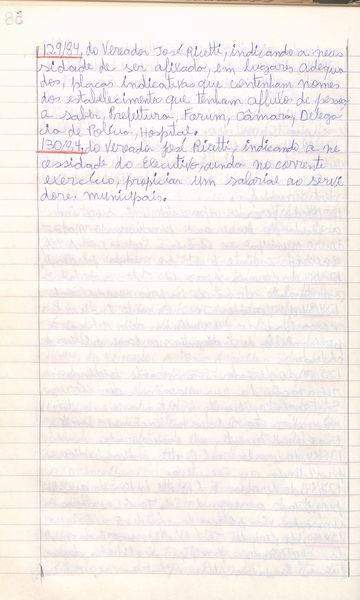 86
129/84, do Vereador José Ricetti, indicando a neces
sidade de ser afixado, em lugares adequa
dos, placas indicativas que contenham nomes
dos estabelecimento que tenham afluto de pessoas
a saber, Prefeitura, Forum, Câmara, Delega
cia de Policia, Hospital.
130/84, do Vereador José Ricetti, indicando a ne
cessidade do Executivo, ainda no corrente
exercício, propiciar um salarial ao servi
dores municipais.